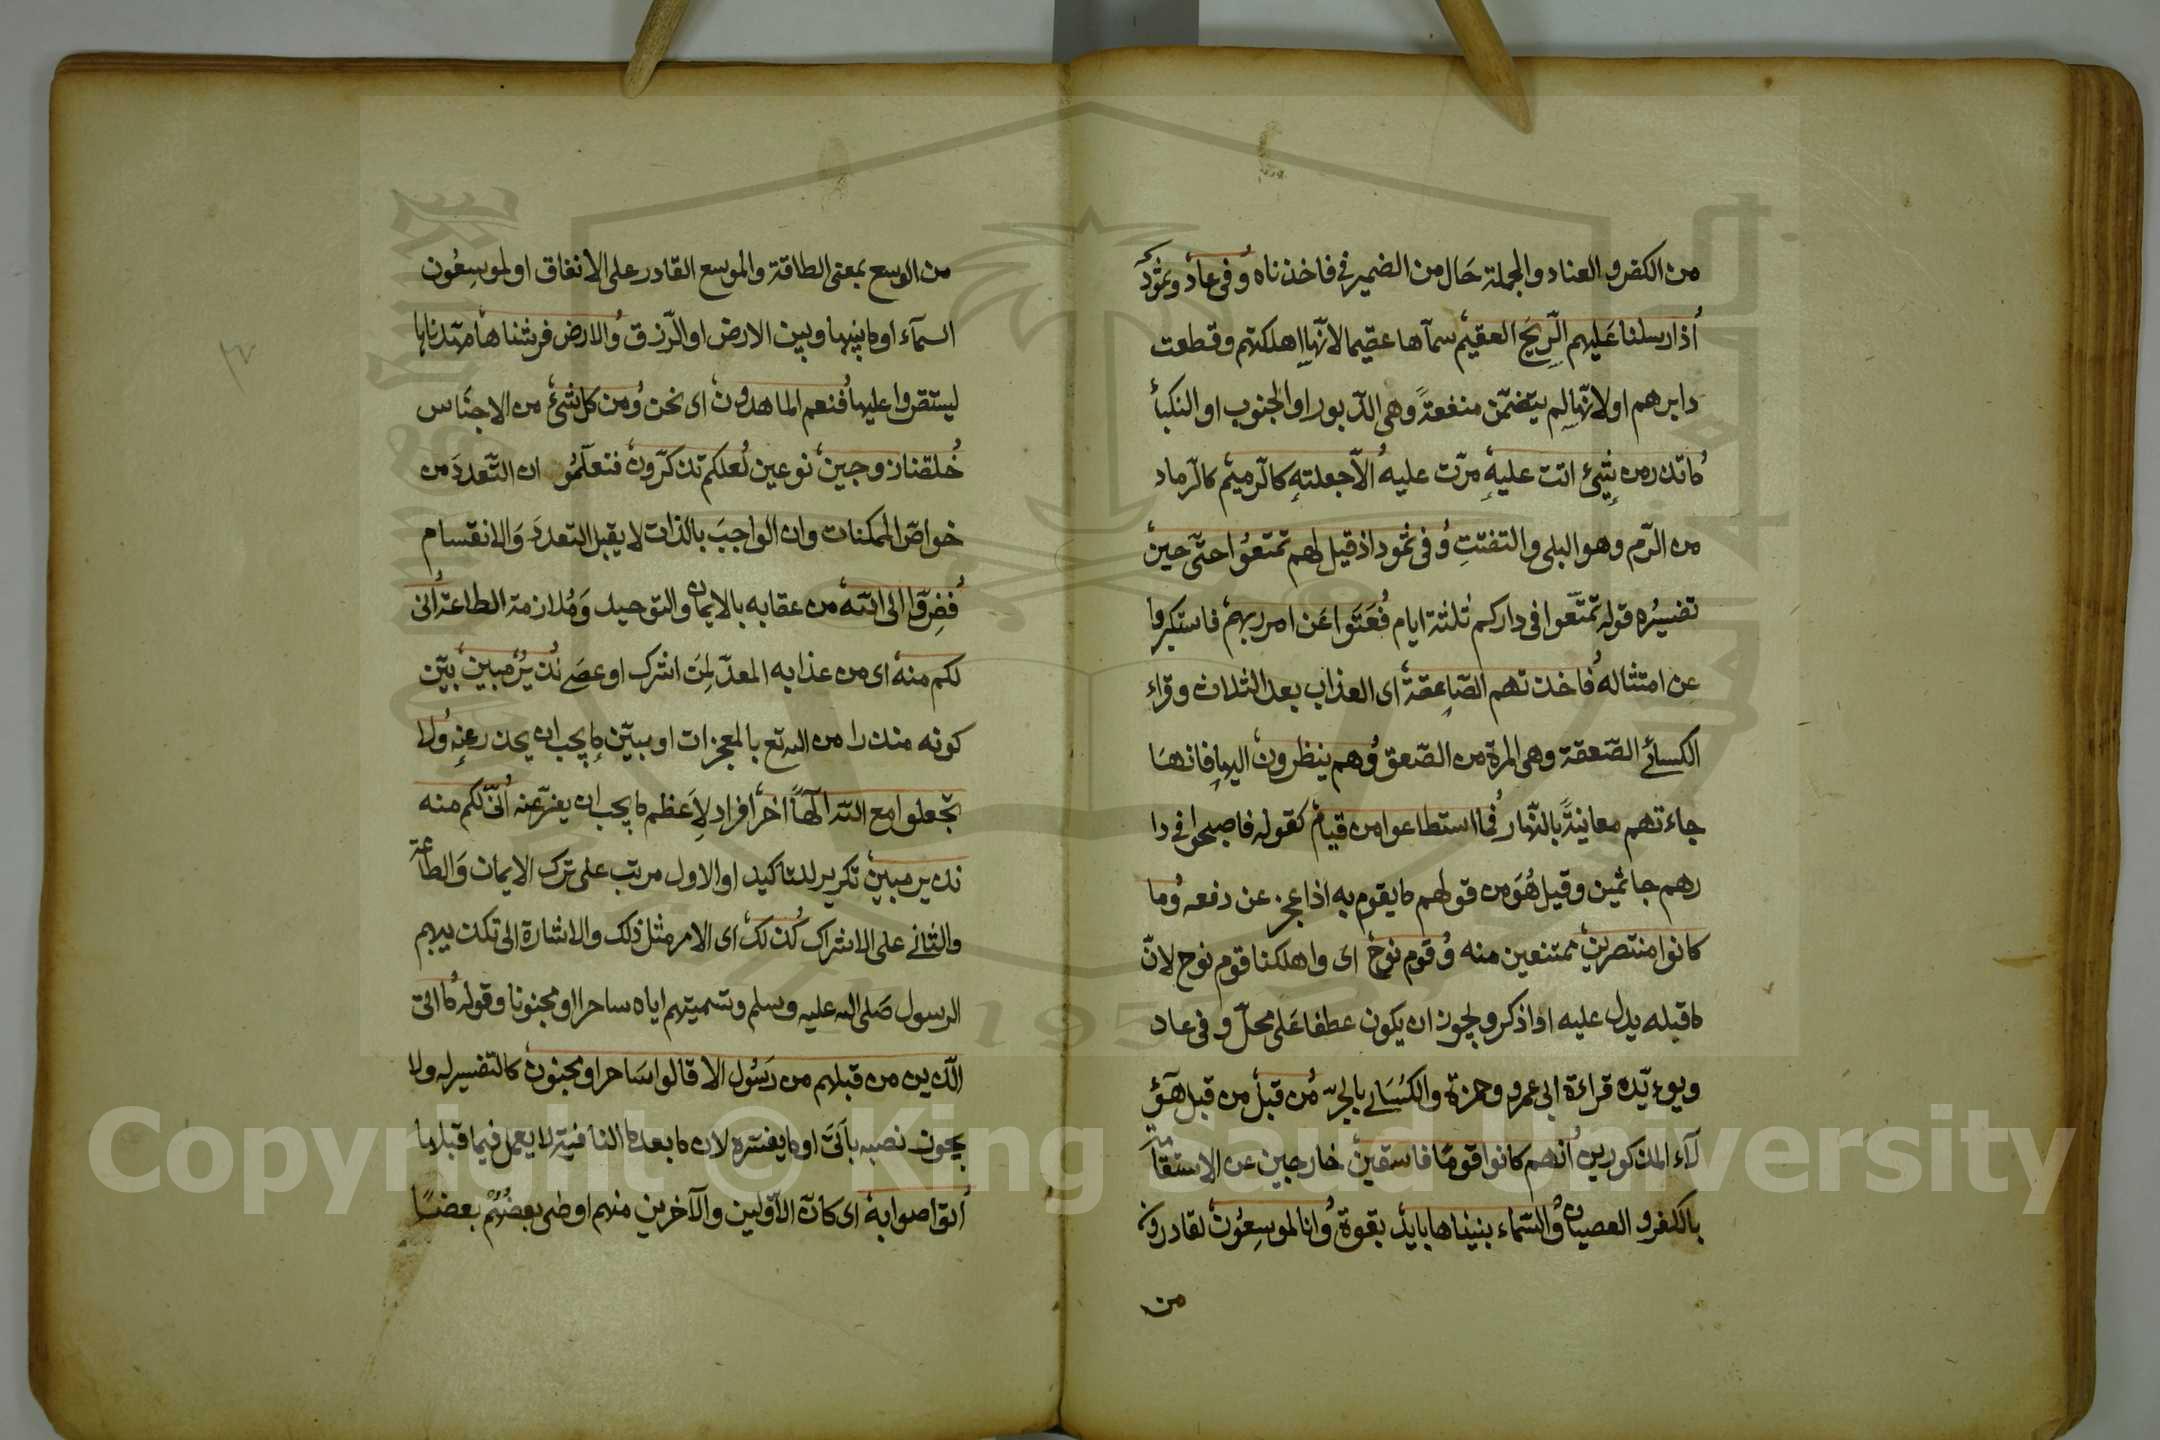 من الكفر و العناد والجملة حال من الضمير في فاخذناه وفي عاد وثمود
اذ ارسلنا عليهم الريح العقيم سماها عقيما لانها اهلكتهم وقطعت
دابرهم او لانها لم يتضمن منفعة وهي الدبور او الجنوب او النكبأ
ما تذر من شئ اتت عليه مرت عليه الا جعلته كالرميم كالرماد
من الرم وهو البلى والتفتت وفي ثمود اذ قيل لهم تمتعوا حتى حين
تفسيره قوله تمتعوا في داركم ثلثة ايام فعتوا عن امر ربهم فاستكبروا
عن امتثاله فاخذتهم الصاعقة اى العذاب بعد الثلاث وقراء
الكسائي الصعقة وهي المرة من الصعق وهم ينظرون اليها فانها
جاءتهم معاينة بالنهار فما استطاعوا من قيام كقوله فاصبحوا في دا
رهم جاثمين وقيل هو من قولهم ما يقوم به اذا عجز عن دفعه وما
كانوا منتصرين ممتنعين منه وقوم نوح اى واهلكنا قوم نوح لان
ما قبله يدل عليه او اذكر ويجوز ان يكون عطفا على محل وفي عاد
ويوءيده قراءة ابي عمرو وحمزة والكسائي بالجر من قبل من قبل هؤ
لآء المذكورين انهم كانوا قوما فاسقين خارجين عن الاستقامة
بالكفر و العصيان والسماء بنيناها بايد بقوة وانا لموسعون لقادرون
من
من الوسع بمعنى الطاقة والموسع القادر على الانفاق او لموسعون
السمآء او ما بينها وبين الارض او الرزق والارض فرشناها مهدناها
ليستقروا عليها فنعم الماهدون اى نحن ومن كل شئ من الاجناس
خلقنا زوجين نوعين لعلكم تذكرون فتعلمون ان التعدد من
خواص الممكنات وان الواجب بالذات لا يقبل التعدد والانقسام
ففروا الى الله من عقابه بالايمان والتوحيد وملازمة الطاعة انى
لكم منه اى من عذابه المعد لمن اشرك او عصى نذير مبين بين
كونه منذرا من الله تع بالمعجزات او مبين ما يجب ان يحذر عنه ولا
تجعلوا مع الله الها اخر افراد لاعظم ما يجب ان يفر عنه انى لكم منه
نذير مبين تكرير للتاكيد او الاول مرتب على ترك الايمان والطاعة
والثاني على الاشراك كذلك اى الامر مثل ذلك والاشارة الى تكذيبهم
الرسول صلى الله عليه وسلم وتسميتهم اياه ساحرا او مجنونا وقوله ما اتى
الذين من قبلهم من رسول الا قالوا ساحر او مجنون كالتفسير له ولا
يجوز نصبه باتى او ما يفسره لان ما بعد ما النافية لا يعمل فيما قبلها
اتواصوا به اى كان الاولين والآخرين منهم اوصى بعضهم بعضا